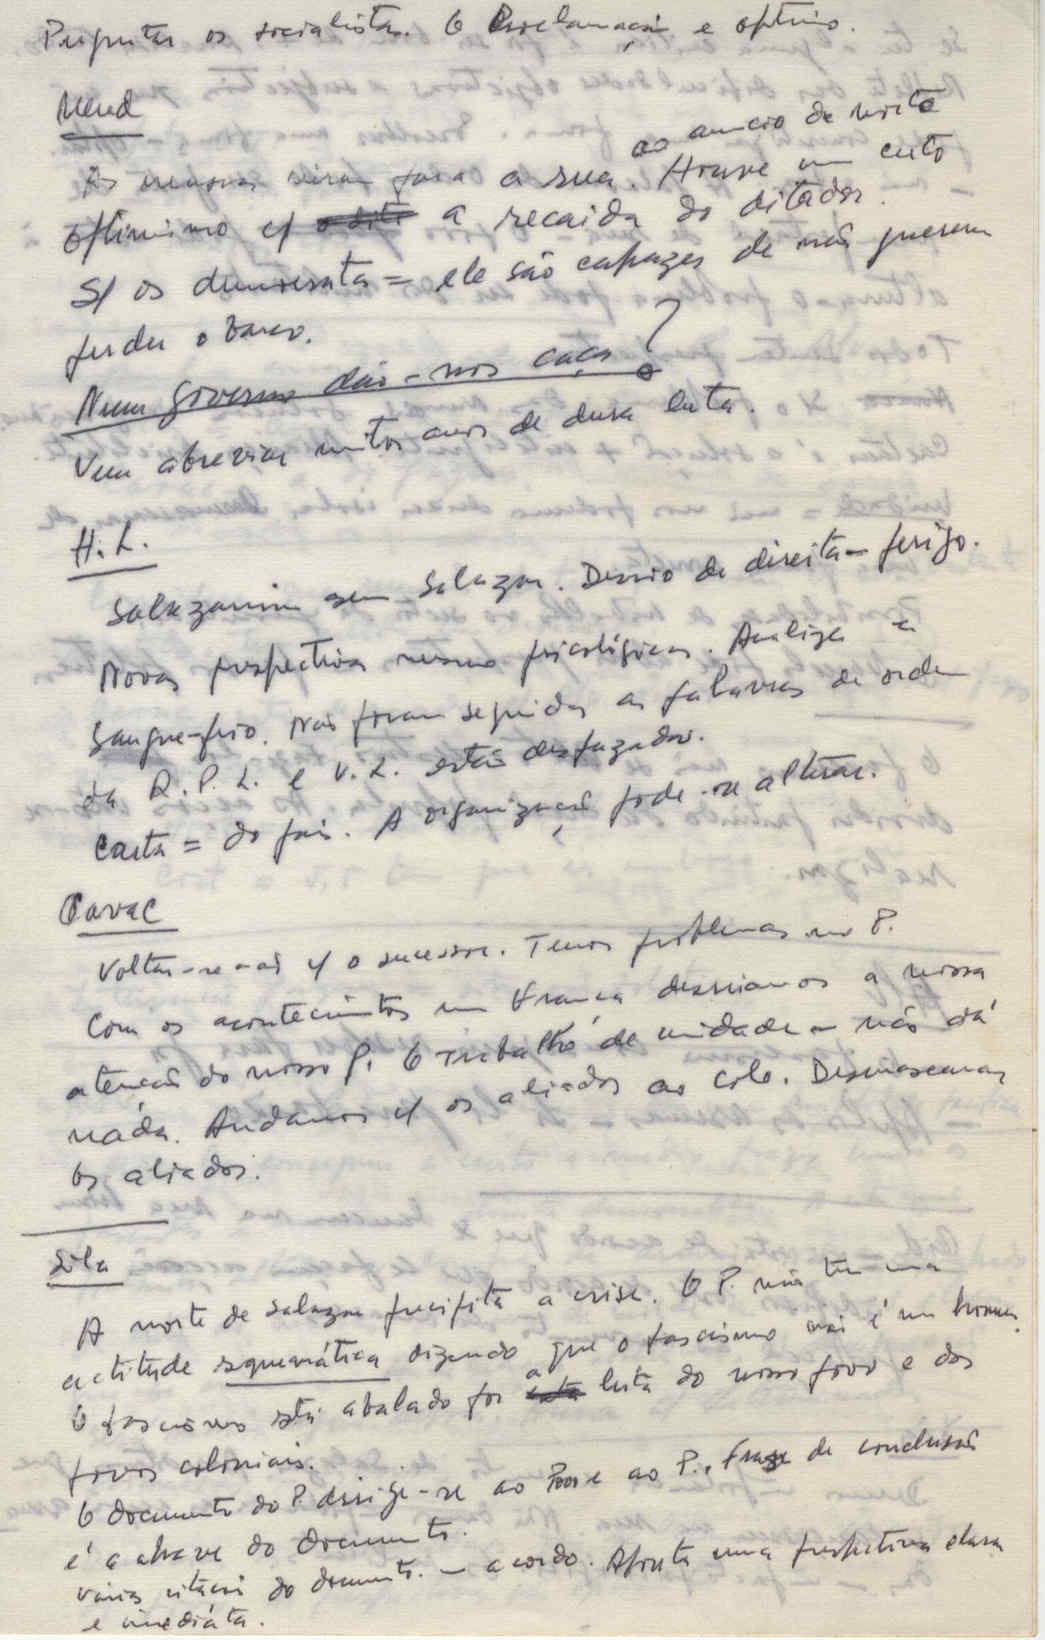 Perguntar os socialistas. O Proclamação e optimo.
Mend
As massas viram para a rua. ao anuncio da morte
Houve um certo
optimismo c/ a recaida do ditador.
S/ os democratas = ele são capazes de não querem
perder o barco.
Num governo dão-nos caça?
Vem abreviar muitos anos de dura luta.
H. L.
Salazarismo sem Salazar. Desvio de direita - perigo.
Novas perspectivas mesmo psicológicas. Analizar a
sangue-frio. Não foram seguidas as palavras de ordem
da R. P. L. e V. L. estão desfazados.
Carta = do país. A organização pode-a alterar.
Cavac
Voltar-se-ão c/ o sucessor. Temos problemas no P.
Com os acontecimentos em França desviamos a nossa
atenção do nosso P. O trabalho de unidade - não dá
nada. Andamos c/ os aliados ao colo. Desmascarar
os aliados.
Sila
A morte de Salazar precipita a crise. O P. não tem uma
actitude esquemática dizendo que o fascismo não é um homem.
O fascismo está abalado por a luta do nosso povo e dos
povos coloniais.
O documento do P. dirige-se ao Povo e ao P. Frase de conclusão
é a chave do documento.
Várias citações do documento. - acordo. Aponta uma perspectiva clara
e imediáta.